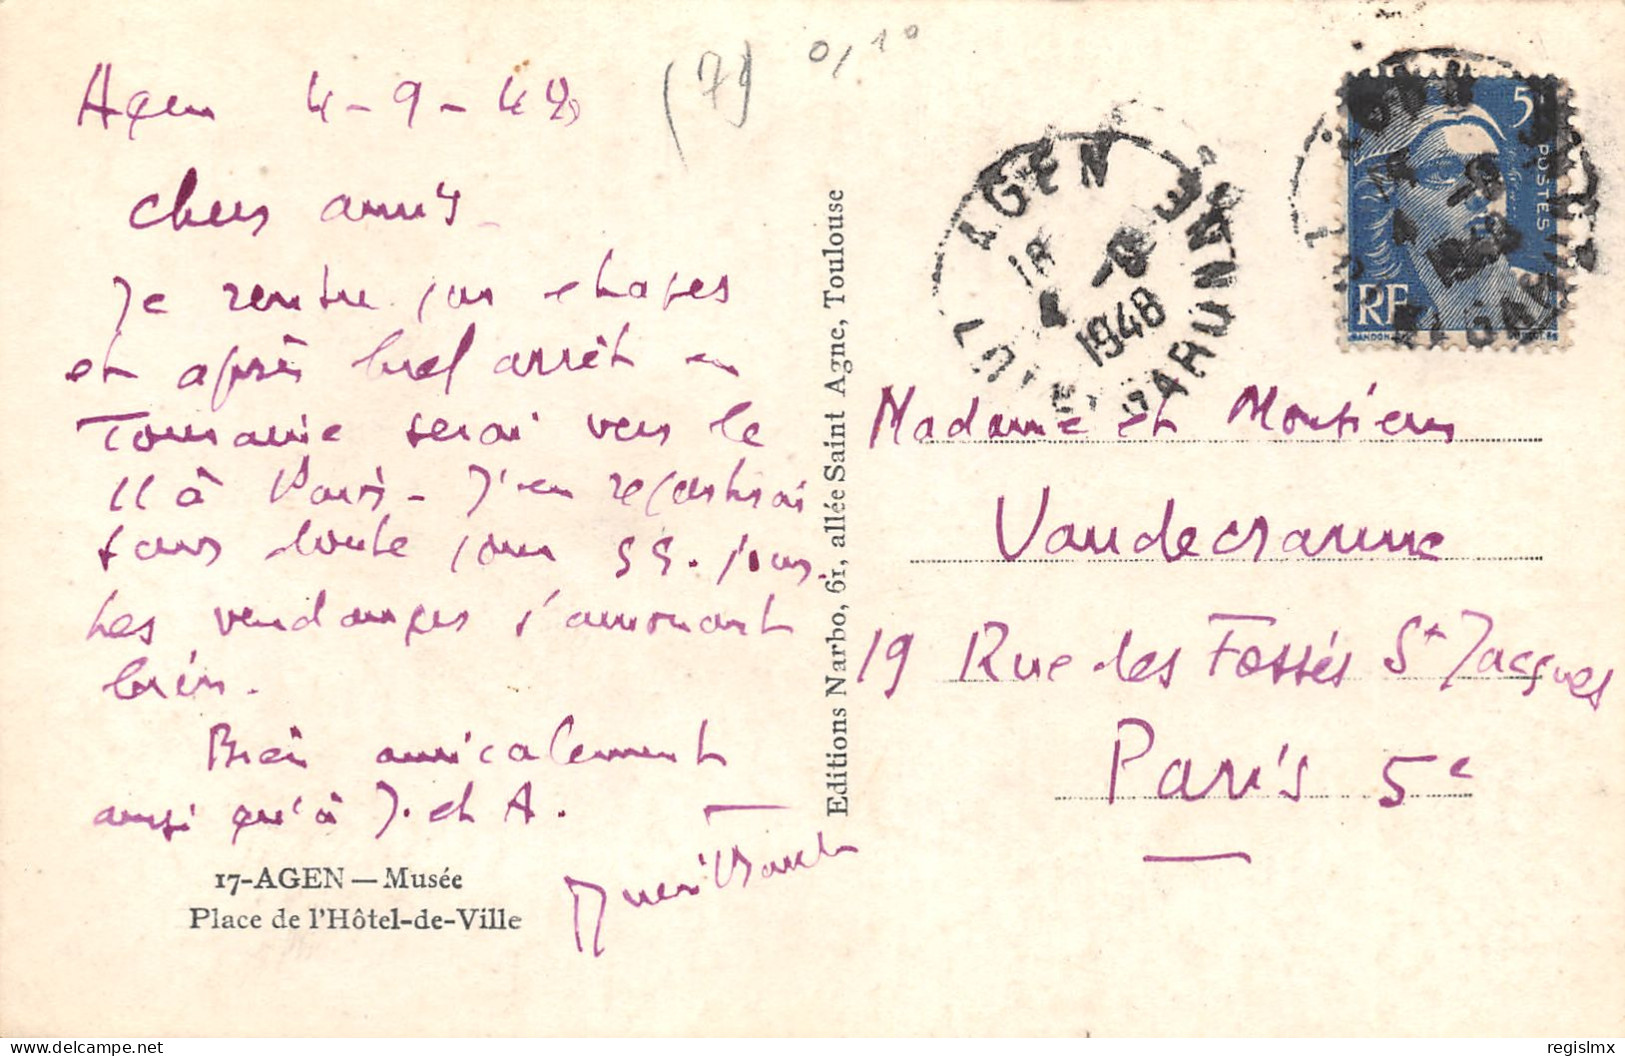 Agen 4-9-48
(79)
0,10
Chers amis
Je rentre par étapes
et après bref arrêt en
Touraine serai vers le
11 à Paris - J'en repartirai
sans doute pour 55. jours.
Les vendanges s'annoncent
bien.
Bien amicalement
ainsi qu'à J. et A.
17-AGEN — Musée
Place de l'Hôtel-de-Ville
Editions Narbo, 61, allée Saint Agne, Toulouse
AGEN
18
4 -9
1948
LOT ET GARONNE
5F
POSTES
RF
GANDON
Madame et Monsieur
Vandecranne
19 Rue des Fossés St Jacques
Paris 5e
regislmx